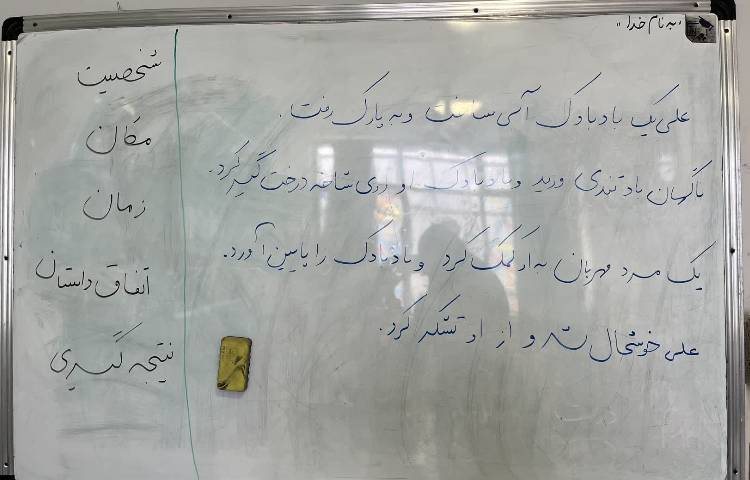 «به نام خدا»
علی یک بادبادک آبی ساخت و به پارک رفت.
ناگهان باد تندی وزید و بادبادک او روی شاخه درخت گیر کرد.
یک مرد مهربان به او کمک کرد و بادبادک را پایین آورد.
علی خوشحال شد و از او تشکر کرد.
شخصیت
مکان
زمان
اتفاق داستان
نتیجه گیری